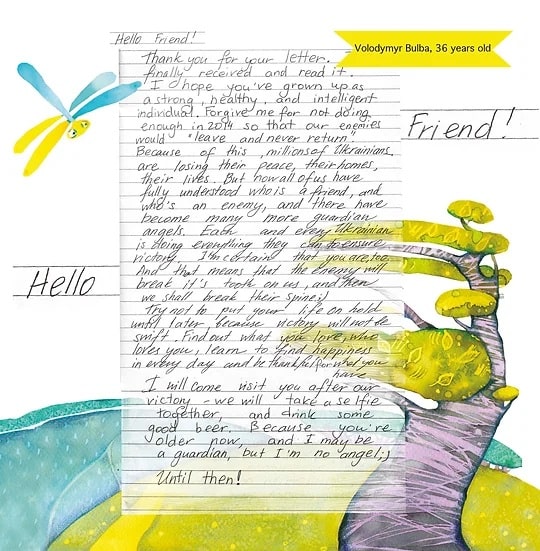 Volodymyr Bulba, 36 years old
Hello Friend!
Thank you for your letter.
finally received and read it.
I hope you've grown up as
a strong, healthy, and intelligent
individual. Forgive me for not doing
enough in 2014 so that our enemies
would "leave and never return".
Because of this, millions of Ukrainians
are losing their peace, their homes,
their lives. But now all of us have
fully understood who is a friend, and
who's an enemy, and there have
become many more guardian
angels. Each and every Ukrainian
is doing everything they can to ensure
victory. I'm certain that you are, too.
And that means that the enemy will
break it's tooth on us, and then
we shall break their spine;)
Try not to put your life on hold
until later, because victory will not be
swift. Find out what you love, who
loves you, learn to find happiness
in every day and be thankful for what you
have
I will come visit you after our
victory - we will take a selfie
together, and drink some
good beer. Because you're
older now, and I may be
a guardian, but I'm no angel;)
Until then!
Hello
Friend!